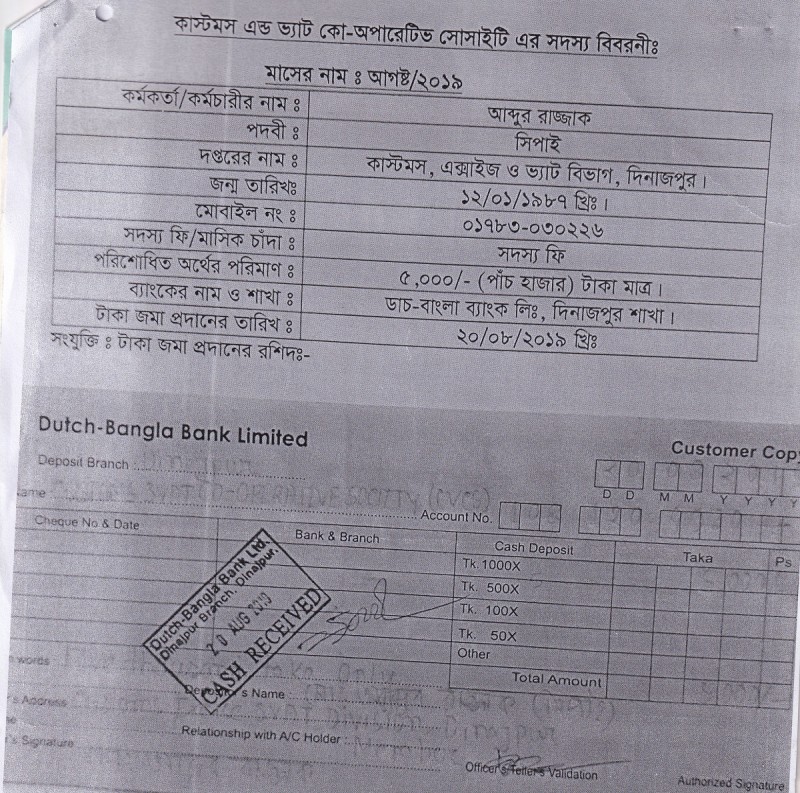 কাস্টমস এন্ড ভ্যাট কো-অপারেটিভ সোসাইটি এর সদস্য বিবরনীঃ
মাসের নাম ঃ আগষ্ট/২০১৯
কর্মকর্তা/কর্মচারীর নাম ঃ আব্দুর রাজ্জাক
পদবী ঃ সিপাই
দপ্তরের নাম ঃ কাস্টমস, এক্সাইজ ও ভ্যাট বিভাগ, দিনাজপুর।
জন্ম তারিখঃ ১২/০১/১৯৮৭ খ্রিঃ।
মোবাইল নং ঃ ০১৭৮৩-০৩০২২৬
সদস্য ফি/মাসিক চাঁদা ঃ সদস্য ফি
পরিশোধিত অর্থের পরিমাণ ঃ ৫,০০০/- (পাঁচ হাজার) টাকা মাত্র।
ব্যাংকের নাম ও শাখা ঃ ডাচ-বাংলা ব্যাংক লিঃ, দিনাজপুর শাখা।
টাকা জমা প্রদানের তারিখ ঃ ২০/০৮/২০১৯ খ্রিঃ
সংযুক্তি ঃ টাকা জমা প্রদানের রশিদঃ-
Dutch-Bangla Bank Limited
Customer Copy
Deposit Branch :
D D M M Y Y Y Y
ame CO-OPERATIVE SOCITY
Account No.
Cheque No & Date Bank & Branch Cash Deposit Taka Ps
Tk. 1000X
Tk. 500X
Tk. 100X
Tk. 50X
Other
Total Amount
Dutch-Bangla Bank Ltd.
Dinajpur Branch. Dinajpur.
20 AUG 2019
CASH RECEIVED
words Only
Depositor's Name :
's Address Dinajpur
Relationship with A/C Holder :
's Signature
Officer's/Teller's Validation
Authorized Signature